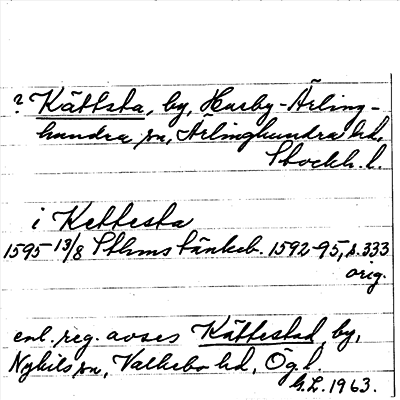 ? Kättsta, by, Husby-Ärling-
hundra sn, Ärlinghundra hd,
Stockh. l.
i Kettesta
1595 13/8 Sthms tänkeb. 1592-95, s. 333
orig.
enl. reg. avses Kättestad, by,
Nykils sn, Valkebo hd, Ög. l.
G.L. 1963.